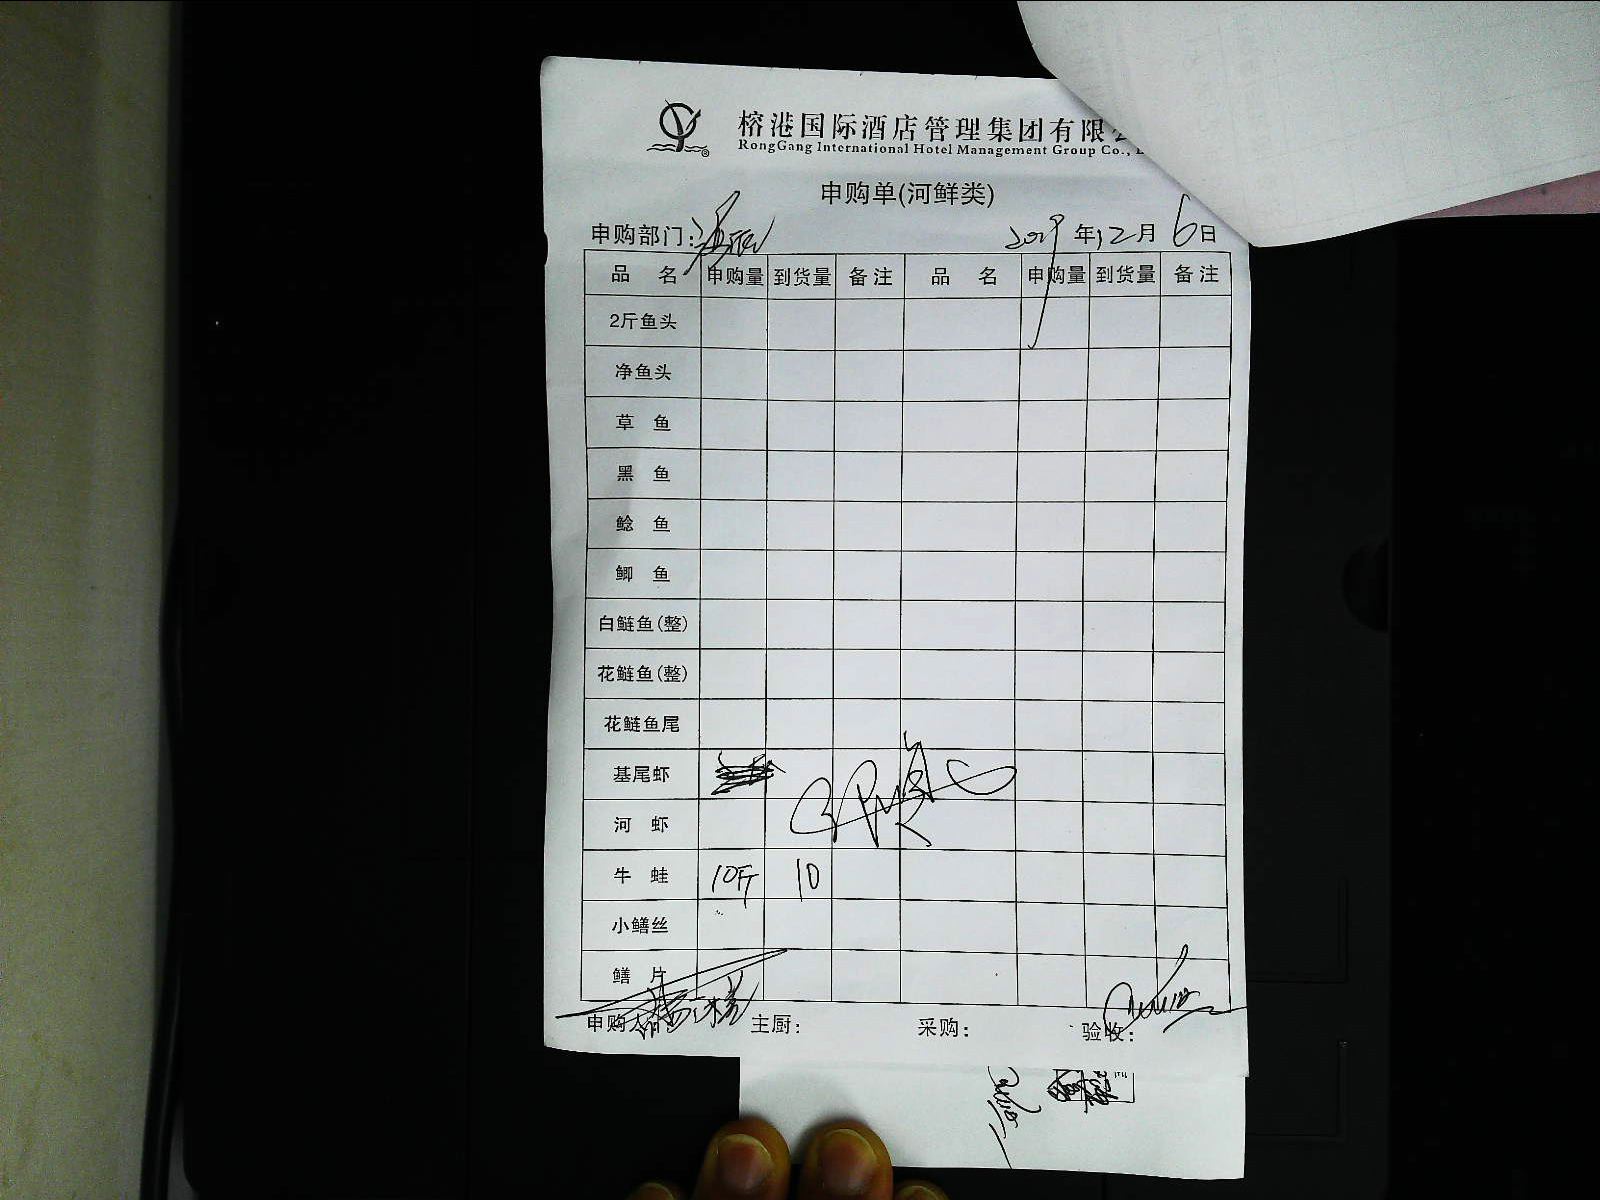 榕港国际酒店管理集团有限
RongGang International Hotel Management Group Co.,
申购单(河鲜类)
申购部门: 2019年12月6日
品 名 申购量 到货量 备注 品 名 申购量 到货量 备注
2斤鱼头
净鱼头
草 鱼
黑 鱼
鲶 鱼
鲫 鱼
白鲢鱼(整)
花鲢鱼(整)
花鲢鱼尾
基尾虾
河 虾
牛 蛙 10斤 10
小鳝丝
鳝 片
申购人 主厨: 采购: 验收: